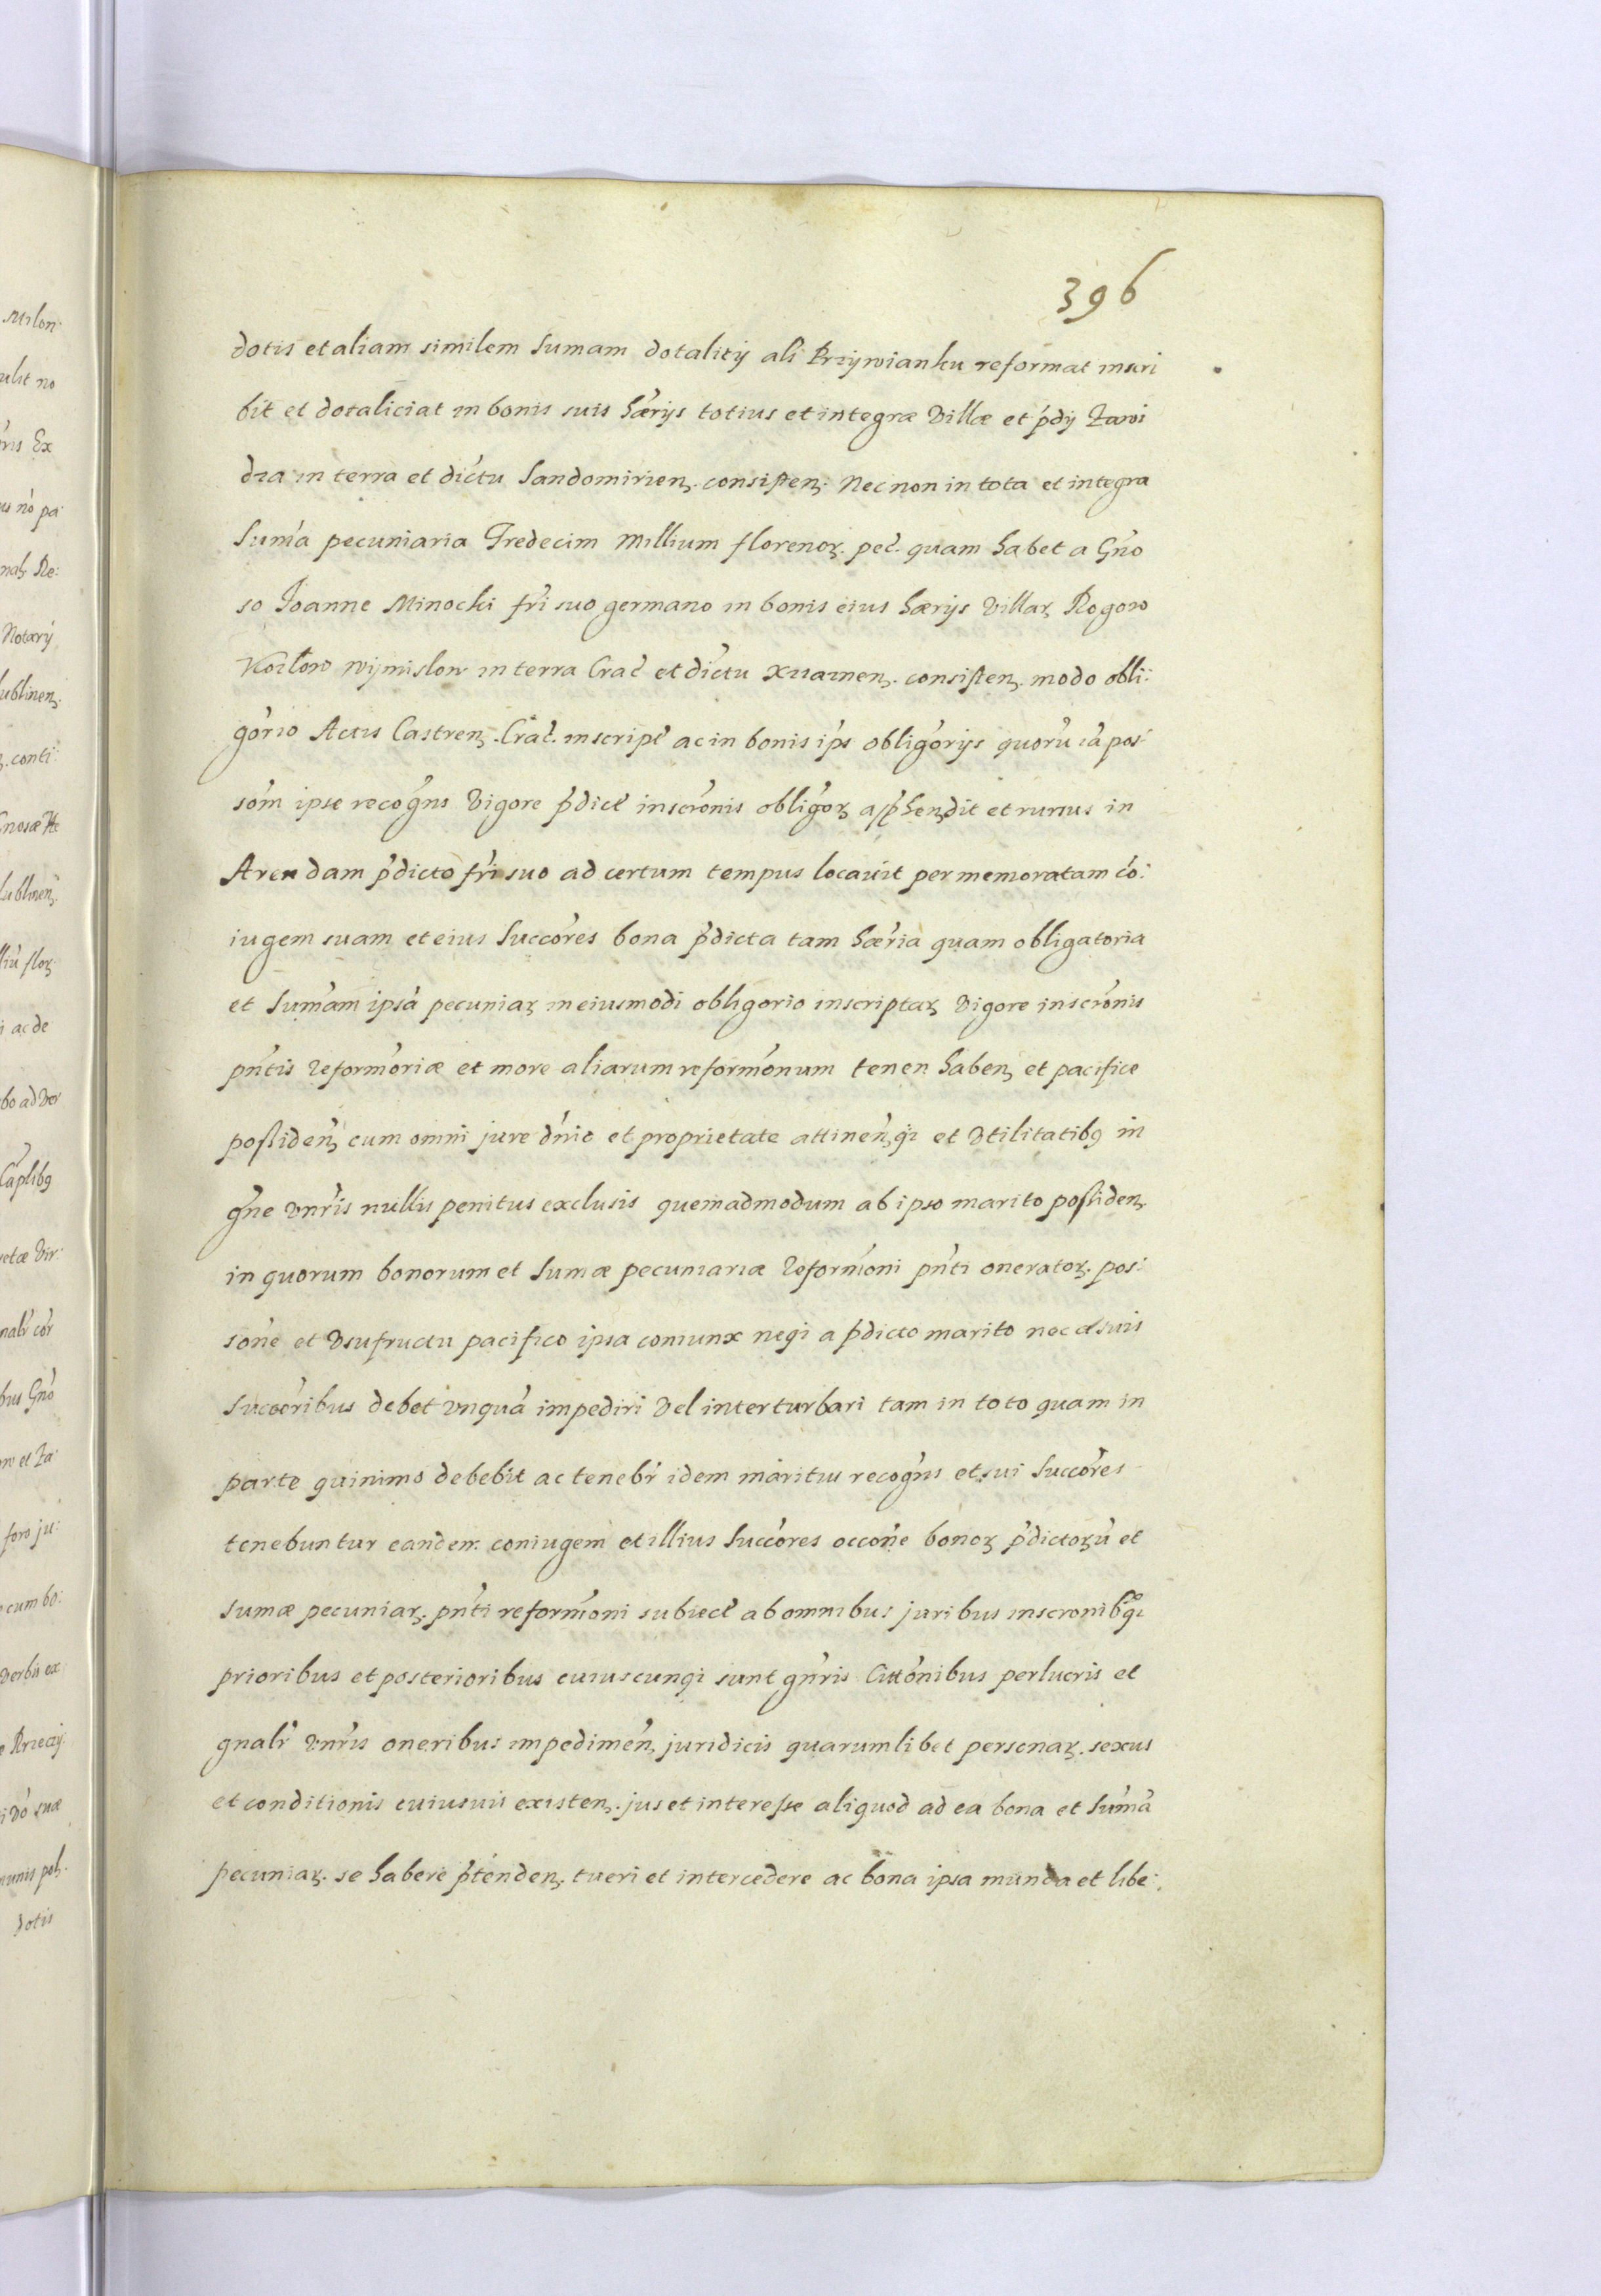 396
dotis et aliam similem sumam dotalitij ali Przywianku reformat inscri
bit et dotaliciat in bonis suis hærijs totius et integræ Villæ et pdij Zawi
dza in terra et dictu Sandomirien. consisten. Nec non in tota et integra
Suma pecuniaria Tredecim Millium florenoꝝ. pec. quam habet a Gno
so Joanne Minocki fri suo germano in bonis eius hærijs Villaꝝ Rogow
Kozlow Wijmislow in terra Crac et dictu Xiiaznen. consisten. modo obli:
gorio Actis Castren. Crac. inscript ac in bonis ips obligorijs quorũ iã pos:
som ipse recogns Vigore pdict inscronis obligoꝝ apphendit et rursus in
Arendam pdicto fri suo ad certum tempus locavit per memoratam co:
iugem suam et eius Succores bona pdicta tam hæria quam obligatoria
et Sumam ipsã pecuniaꝝ in eiusmodi obligorio inscriptaꝝ Vigore inscronis
pntis reformoriæ et more aliarum reformonum tenen haben. et pacifice
possiden. cum omni jure dnio et proprietate attinen. qz et Vtilitatibꝯ in
gne Vnris nullis penitus exclusis quemadmodum ab ipso marito possiden.
in quorum bonorum et Sumæ pecuniariæ reformoni pnti oneratoꝝ. pos:
sone et Vsufructu pacifico ipsa coniunx neqi a pdicto marito nec a suis
Succoribus debet Vnquã impediri Vel interturbari tam in toto quam in
parte quinimo debebit ac tenebr idem maritus recogns et sui Succores
tenebuntur eandem coniugem et illius Succores occone bonoꝝ pdictoꝝũ et
Sumæ pecuniaꝝ. pnti reformoni subiect ab omnibus juribus inscronibꝯqz
prioribus et posterioribus cuiuscunqi sunt gnris Cittonibus perlucris et
gnalr Vnris oneribus impedimen. juridicis quarumlibet personaꝝ. sexus
et conditionis cuiusuis existen. jus et interesse aliquod ad ea bona et Sumã
pecuniaꝝ. se habere ptenden. tueri et intercedere ac bona ipsa munda et libe: